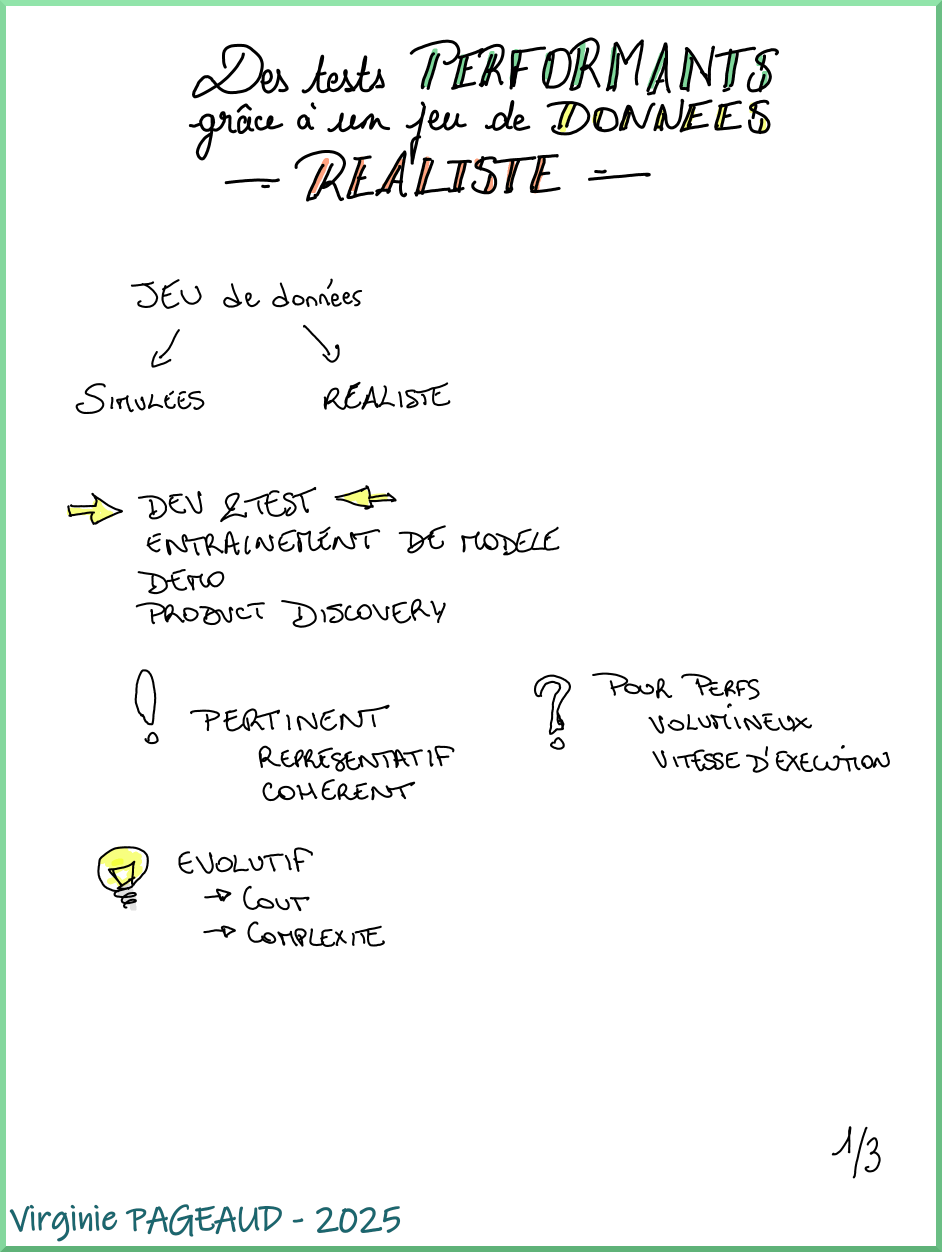 Des tests PERFORMANTS
grâce à un jeu de DONNEES
— REALISTE —
JEU de données
SIMULÉES
RÉALISTE
DEV & TEST
ENTRAINEMENT DE MODELE
DEMO
PRODUCT DISCOVERY
! PERTINENT
REPRESENTATIF
COHERENT
? POUR PERFS
VOLUMINEUX
VITESSE D'EXECUTION
EVOLUTIF
→ COUT
→ COMPLEXITE
1/3
Virginie PAGEAUD - 2025